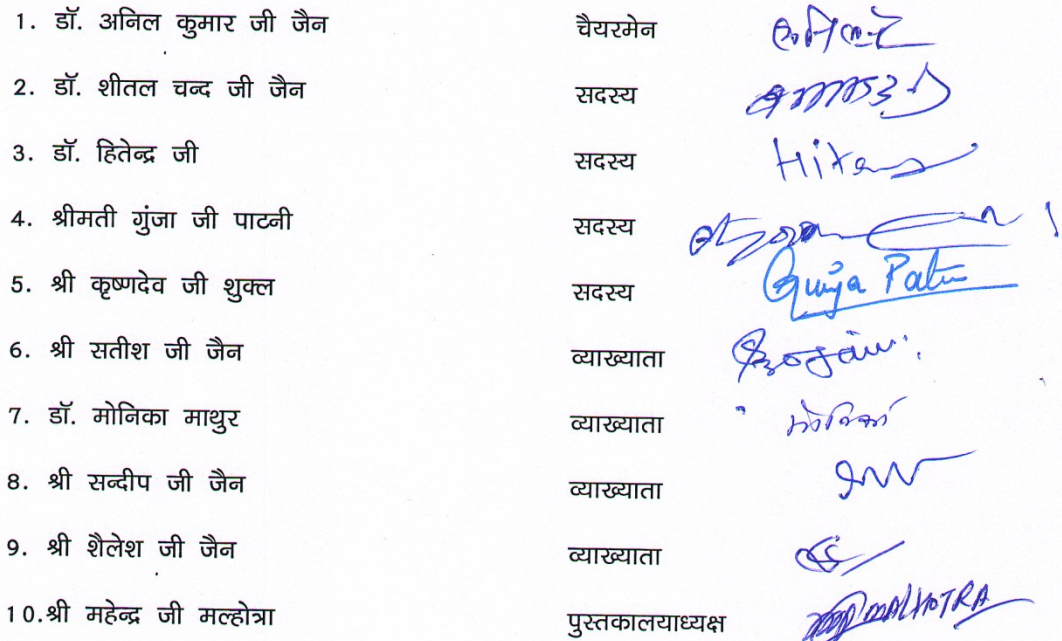 1. डॉ. अनिल कुमार जी जैन चैयरमेन
2. डॉ. शीतल चन्द जी जैन सदस्य
3. डॉ. हितेन्द्र जी सदस्य
4. श्रीमती गुंजा जी पाटनी सदस्य
5. श्री कृष्णदेव जी शुक्ल सदस्य Gunja Patni
6. श्री सतीश जी जैन व्याख्याता
7. डॉ. मोनिका माथुर व्याख्याता मोनिका
8. श्री सन्दीप जी जैन व्याख्याता
9. श्री शैलेश जी जैन व्याख्याता
10.श्री महेन्द्र जी मल्होत्रा पुस्तकालयाध्यक्ष MALHOTRA